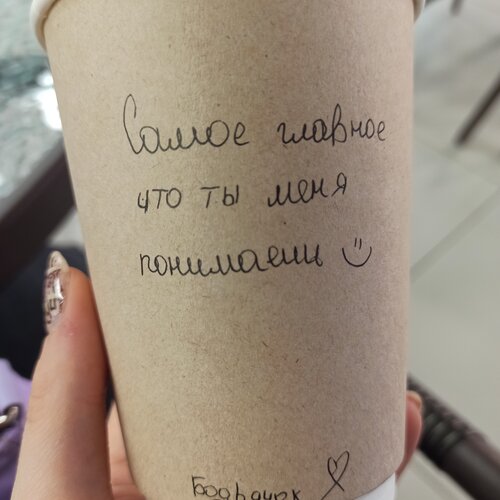 Самое главное
что ты меня
понимаешь